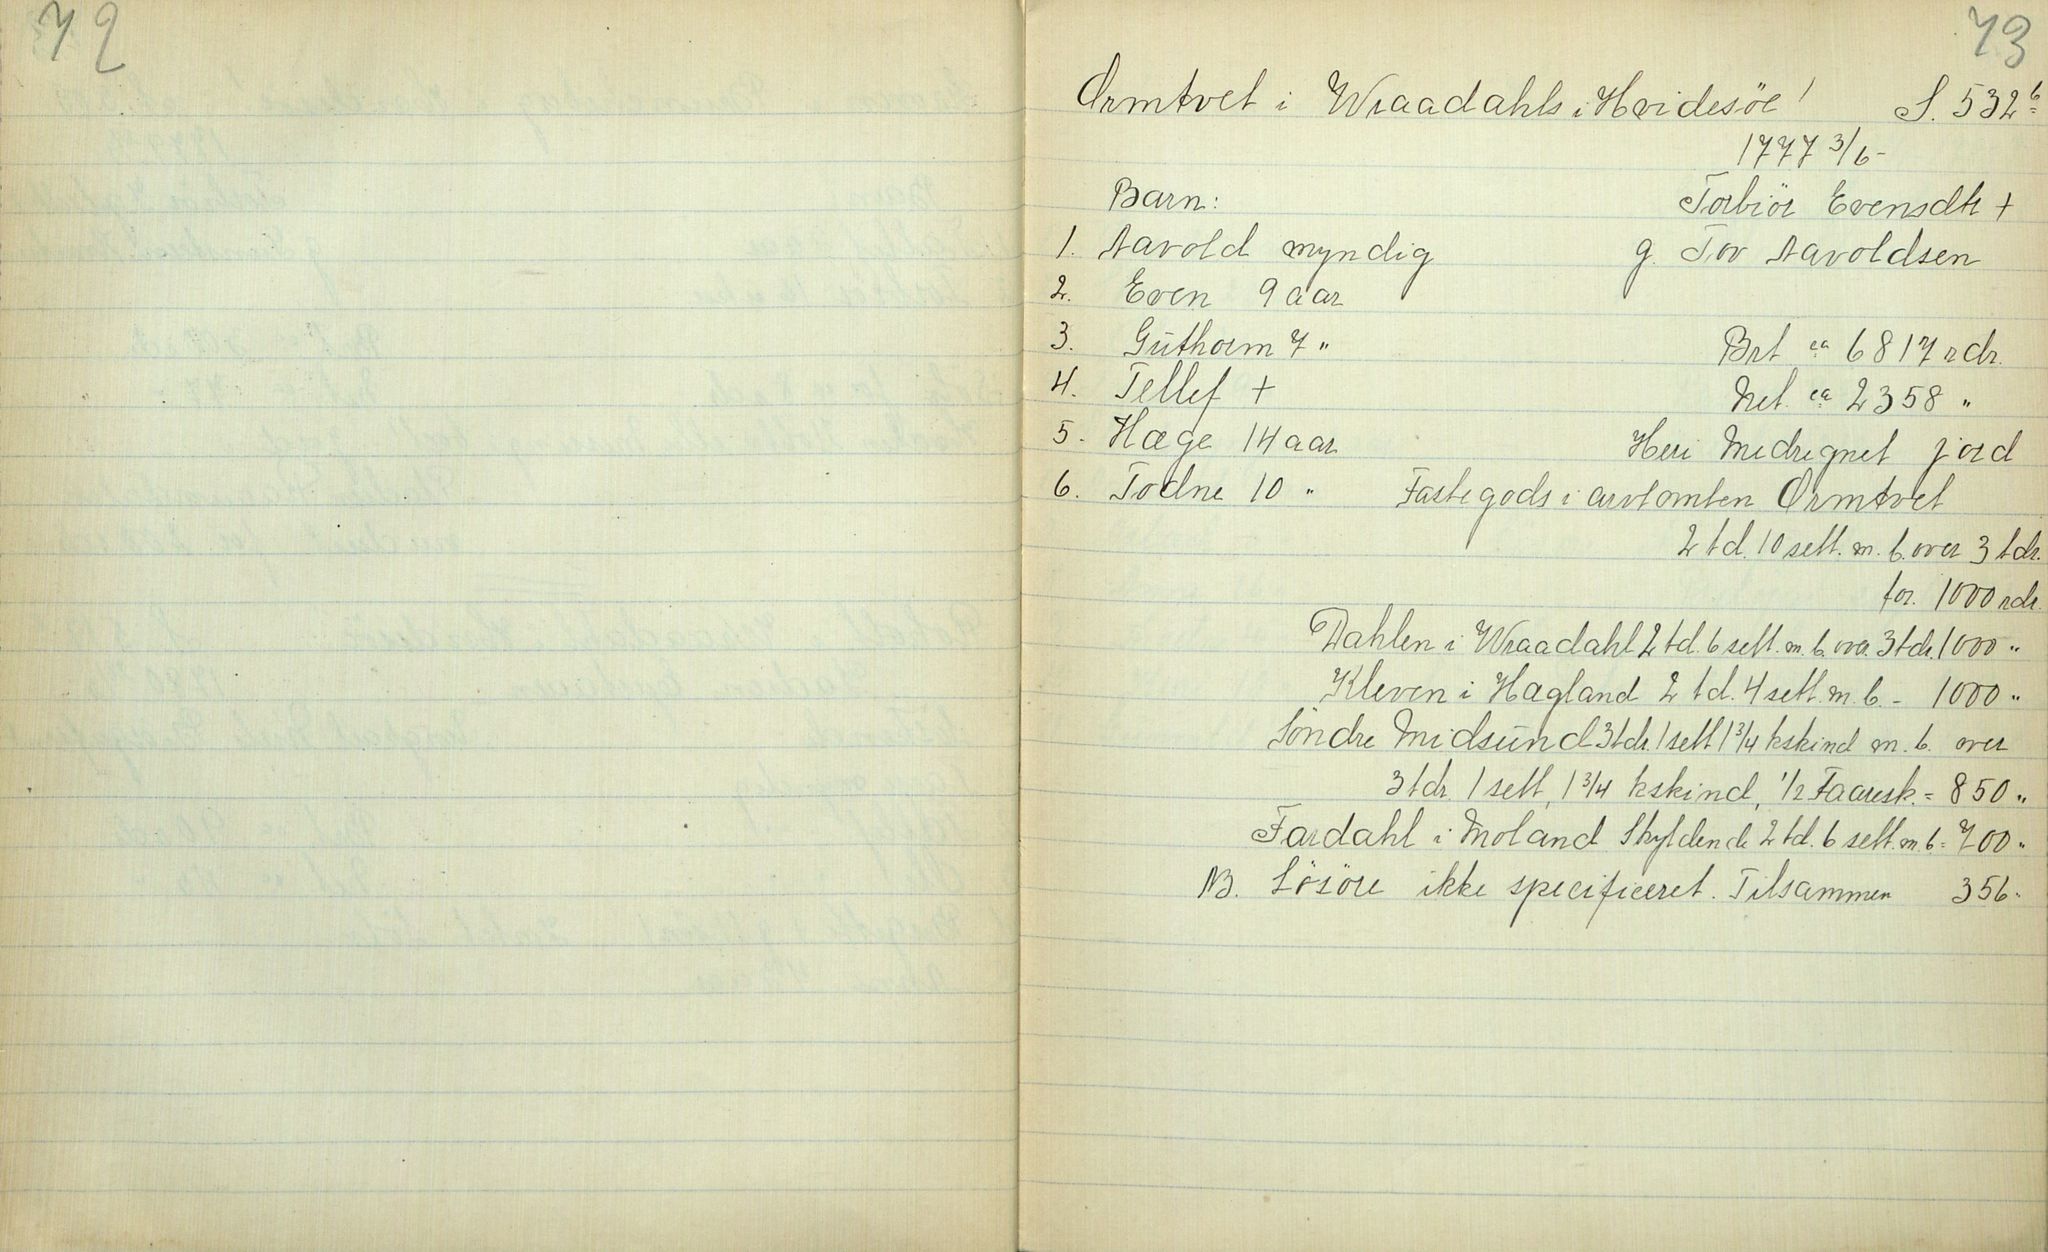 72
73
Ormtvet i Wraadahls i Hvidesöe S. 532 b
1777 3/6 -
Barn: Torbiör Evensdtr +
1. Aavold myndig g. Tov Aavoldsen
2. Even 9 aar
3. Guthorm 7 " Brt ca 6817 rdr.
4. Tellef + Net. ca 2358 "
5. Hæge 14 aar Heri Medregnet jord
6. Todne 10 " Fastegods i arvtomten Ormtvet
2 td. 10 sett. m. b. over 3 tdr.
for. 1000 rdr.
Dahlen i Wraadahl 2 td. 6 sett. m. b. over. 3 tdr. 1000 "
Kleven i Hægland 2 td. 4 sett. m. b. - 1000 "
Söndre Midsund 3 tdr. 1 sett 1 3/4 kskind m. b. over
3 tdr. 1 sett, 1 3/4 kskind, 1/2 Faaresk. = 850 "
Fardahl i Moland Skyldende 2 td. 6 sett. m. b. = 700 "
NB. Lösöre ikke specificeret. Tilsammen 356 -